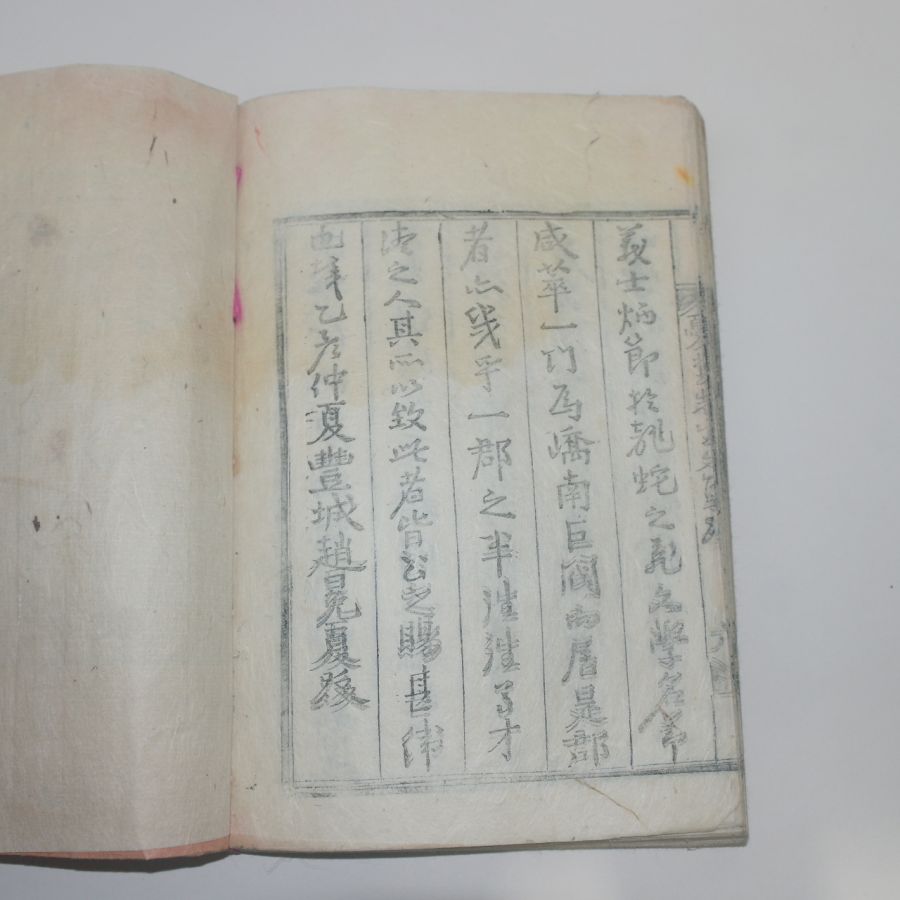 義士炳節於龍蛇之乱文學名節
咸萃一门爲嶠南巨閥而居是郡
者亦幾乎一郡之半往往多才
之人其所以致此者皆公之賜甚偉
也乙仲夏豐城趙冕夏跋